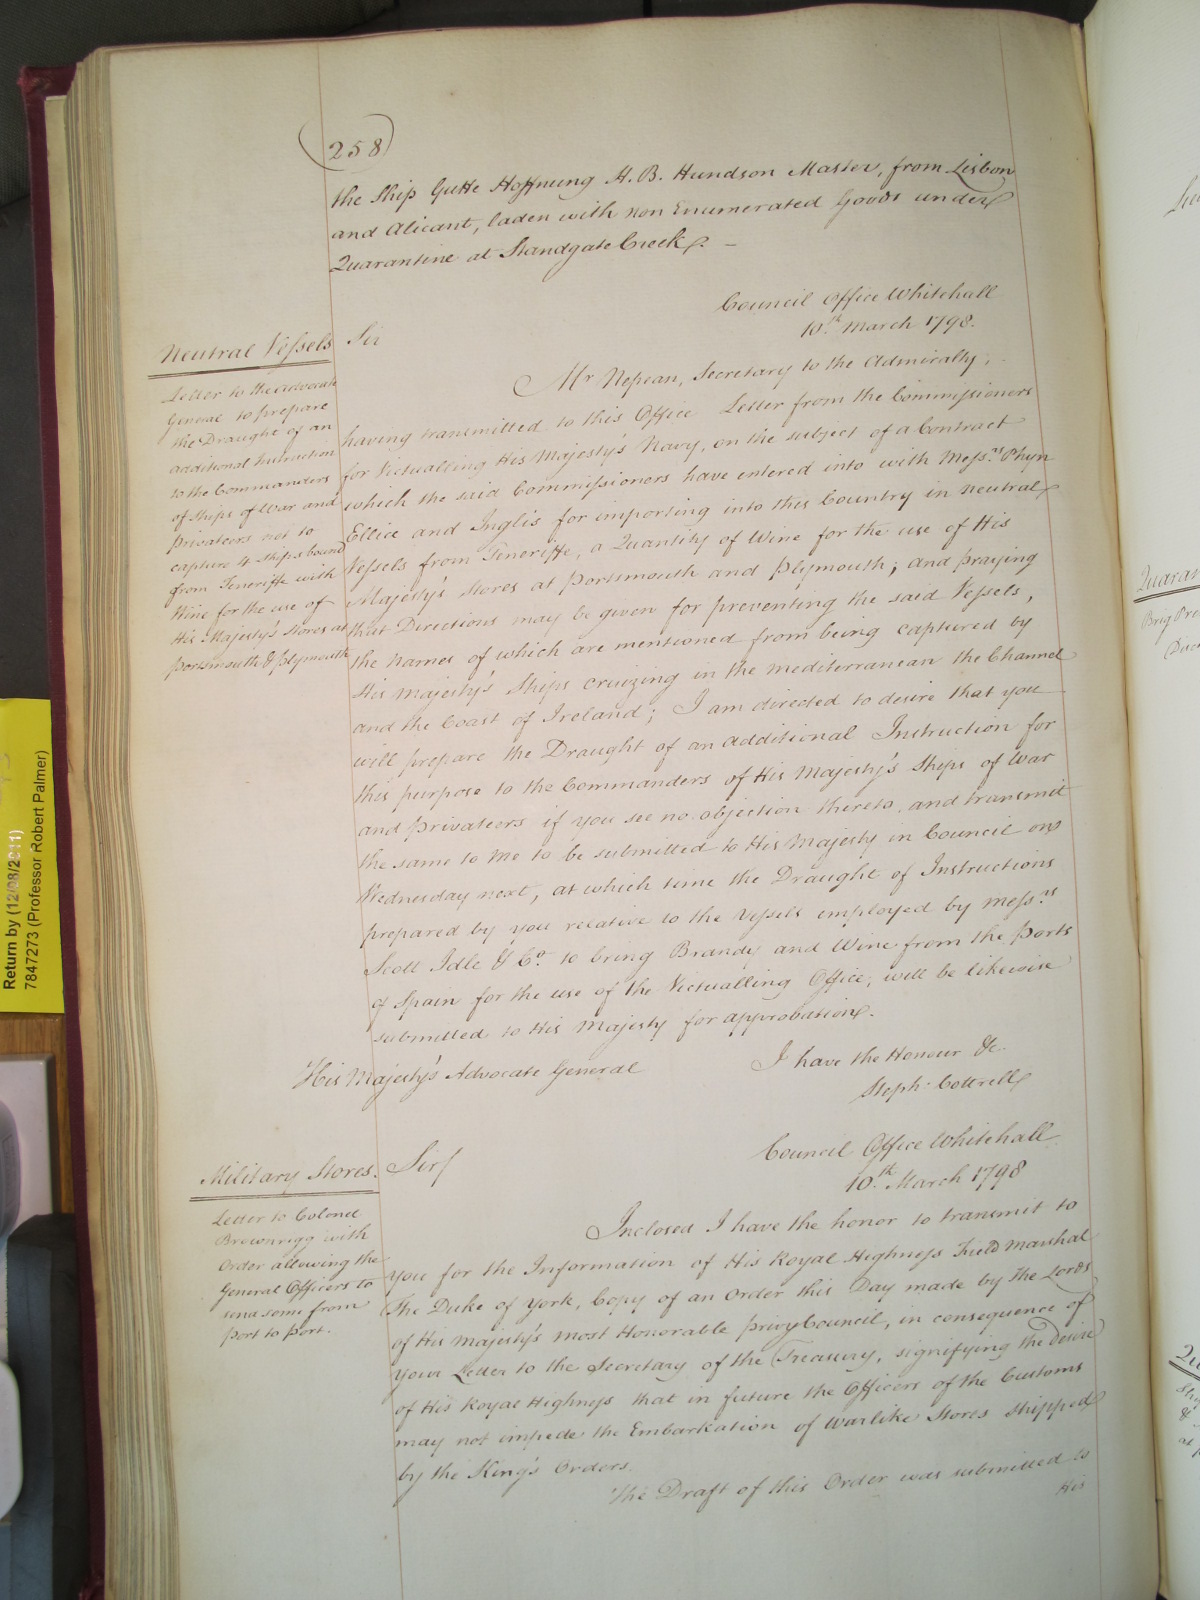 (258)
the Ship Gutte Hoffnung H. B. Hundson Master, from Lisbon
and Alicant, laden with non Enumerated Goods under
Quarantine at Standgate Creek. —
Council Office Whitehall
10th March 1798.
Neutral Vessels
Letter to the Advocate
General to prepare
the Draught of an
additional Instruction
to the Commanders
of Ships of War and
Privateers not to
capture 4 Ships bound
from Teneriffe with
Wine for the use of
His Majesty's Stores at
Portsmouth & Plymouth
Sir
Mr Nepean, Secretary to the Admiralty,
having transmitted to this Office Letter from the Commissioners
for Victualling His Majesty's Navy, on the subject of a Contract
which the said Commissioners have entered into with Messrs Phyn
Ellice and Inglis for importing into this Country in neutral
Vessels from Teneriffe, a Quantity of Wine for the use of His
Majesty's Stores at Portsmouth and Plymouth; and praying
that Directions may be given for preventing the said Vessels,
the names of which are mentioned from being captured by
His Majesty's Ships cruizing in the Mediterranean the Channel
and the Coast of Ireland; I am directed to desire that you
will prepare the Draught of an additional Instruction for
this purpose to the Commanders of His Majesty's Ships of War
and Privateers if you see no objection thereto, and transmit
the same to me to be submitted to His Majesty in Council on
Wednesday next, at which time the Draught of Instructions
prepared by you relative to the Vessels employed by Messrs
Scott Idle & Co. to bring Brandy and Wine from the Ports
of Spain for the use of the Victualling Office, will be likewise
submitted to His Majesty for approbation.
I have the Honour &c.
Steph. Cottrell
His Majesty's Advocate General
Council Office Whitehall
10th March 1798
Military Stores.
Letter to Colonel
Brownrigg with
Order allowing the
General Officers to
send some from
Port to Port.
Sir/
Inclosed I have the honor to transmit to
you for the Information of His Royal Highness Field Marshal
The Duke of York, Copy of an Order this Day made by the Lords
of His Majesty's most Honorable privy Council, in consequence of
your Letter to the Secretary of the Treasury, signifying the desire
of His Royal Highness that in future the Officers of the Customs
may not impede the Embarkation of warlike Stores shipped
by the King's Orders.
The Draft of this Order was submitted to
His
Return by (12/08/2011)
7847273 (Professor Robert Palmer)
Quaran
Brig Pro